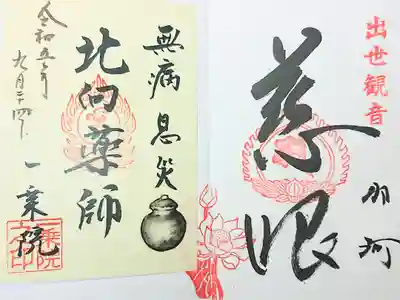 出世観音
慈眼
那珂
無病息災
北向薬師
令和五年
九月二十四日
一乗院